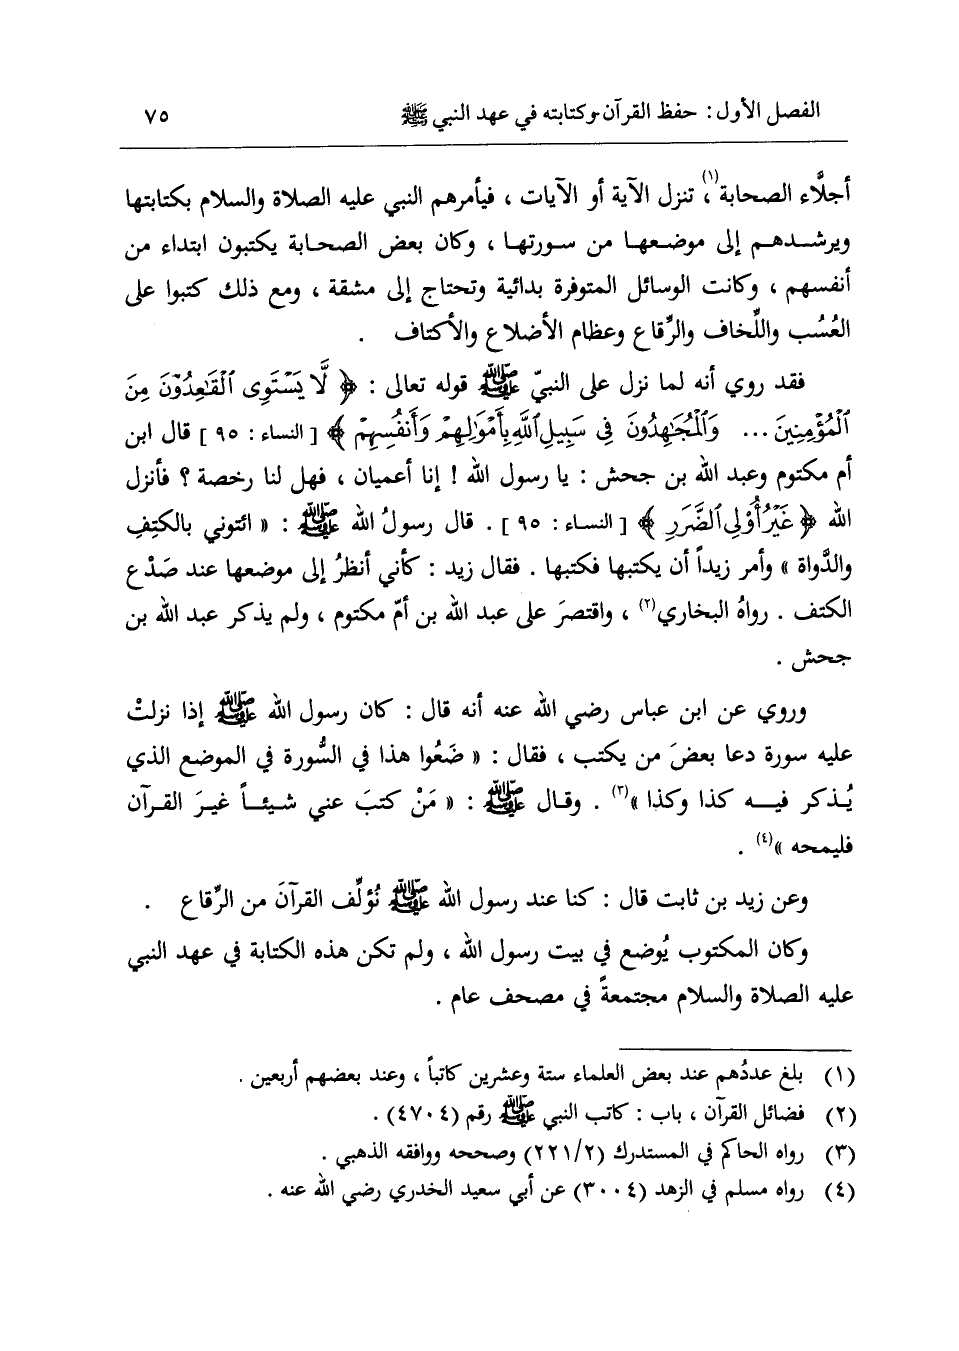 الفصل الأول : حفظ القرآن وكتابته في عهد النبي ﷺ ٧٥
أجلَّاء الصحابة(١)، تنزل الآية أو الآيات ، فيأمرهم النبي عليه الصلاة والسلام بكتابتها
ويرشدهم إلى موضعها من سورتها ، وكان بعض الصحابة يكتبون ابتداء من
أنفسهم ، وكانت الوسائل المتوفرة بدائية وتحتاج إلى مشقة ، ومع ذلك كتبوا على
العُسُب واللِّخاف والرِّقاع وعظام الأضلاع والأكتاف .
فقد روي أنه لما نزل على النبيّ ﷺ قوله تعالى : ﴿ لَّا يَسْتَوِى ٱلْقَٰعِدُونَ مِنَ
ٱلْمُؤْمِنِينَ ... وَٱلْمُجَٰهِدُونَ فِى سَبِيلِ ٱللَّهِ بِأَمْوَٰلِهِمْ وَأَنفُسِهِمْ ﴾ [ النساء : ٩٥ ] قال ابن
أم مكتوم وعبد الله بن جحش : يا رسول الله ! إنا أعميان ، فهل لنا رخصة ؟ فأنزل
الله ﴿ غَيْرُ أُوْلِى ٱلضَّرَرِ ﴾ [ النساء : ٩٥ ] . قال رسولُ الله ﷺ : « ائتوني بالكتِفِ
والدَّواة » وأمر زيداً أن يكتبها فكتبها . فقال زيد : كأني أنظرُ إلى موضعها عند صَدْع
الكتف . رواهُ البخاري(٢) ، واقتصرَ على عبد الله بن أمّ مكتوم ، ولم يذكر عبد الله بن
جحش .
وروي عن ابن عباس رضي الله عنه أنه قال : كان رسول الله ﷺ إذا نزلتْ
عليه سورة دعا بعضَ من يكتب ، فقال : « ضَعُوا هذا في السُّورة في الموضع الذي
يُذكر فيه كذا وكذا »(٣) . وقال ﷺ : « مَنْ كتبَ عني شيئاً غيرَ القرآن
فليمحه »(٤) .
وعن زيد بن ثابت قال : كنا عند رسول الله ﷺ نُؤلِّف القرآنَ من الرِّقاع .
وكان المكتوب يُوضع في بيت رسول الله ، ولم تكن هذه الكتابة في عهد النبي
عليه الصلاة والسلام مجتمعةً في مصحف عام .
(١) بلغ عددُهم عند بعض العلماء ستة وعشرين كاتباً ، وعند بعضهم أربعين .
(٢) فضائل القرآن ، باب : كاتب النبي ﷺ رقم (٤٧٠٤) .
(٣) رواه الحاكم في المستدرك (٢/‏٢٢١) وصححه ووافقه الذهبي .
(٤) رواه مسلم في الزهد (٣٠٠٤) عن أبي سعيد الخدري رضي الله عنه .